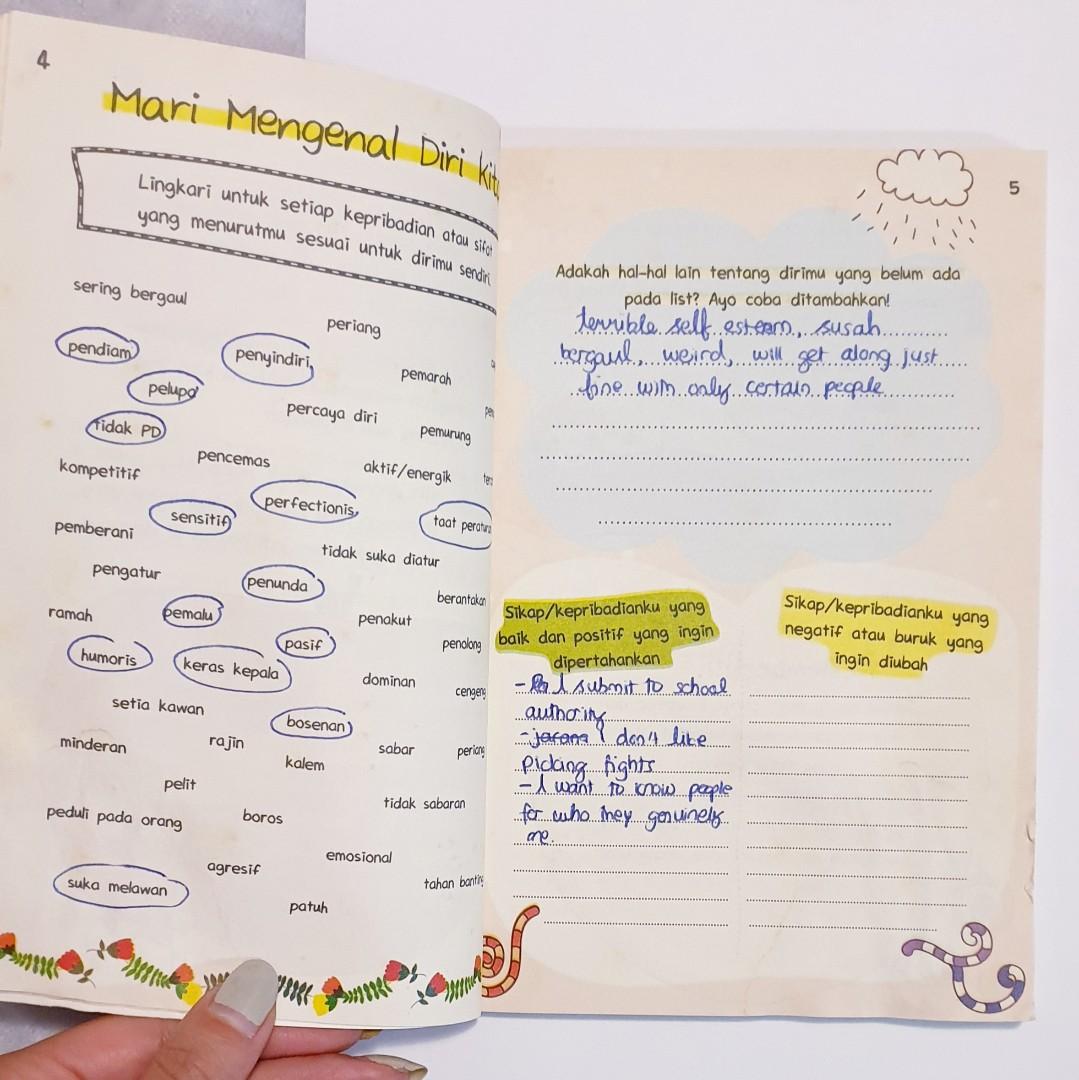 4
Mari Mengenal Diri
Lingkari untuk setiap kepribadian atau sifat
yang menurutmu sesuai untuk dirimu sendiri
sering bergaul
periang
pendiam
penyindiri
pemarah
pelupa
percaya diri
pemurung
tidak PD
pencemas
aktif/energik
kompetitif
perfectionis
sensitif
taat
pemberani
tidak suka diatur
pengatur
penunda
berantakan
ramah
pemalu
penakut
pasif
penolong
humoris
keras kepala
dominan
cengeng
setia kawan
bosenan
minderan
rajin
kalem
sabar
periang
pelit
tidak sabaran
peduli pada orang
boros
emosional
agresif
suka melawan
tahan banting
patuh
5
Adakah hal-hal lain tentang dirimu yang belum ada
pada list? Ayo coba ditambahkan!
terrible self esteem, susah
bergaul, weird, will get along just
fine with only certain people
Sikap/kepribadianku yang
baik dan positif yang ingin
dipertahankan
- I submit to school
authority
- I don't like
picking fights
- I want to know people
for who they genuinely
are.
Sikap/kepribadianku yang
negatif atau buruk yang
ingin diubah